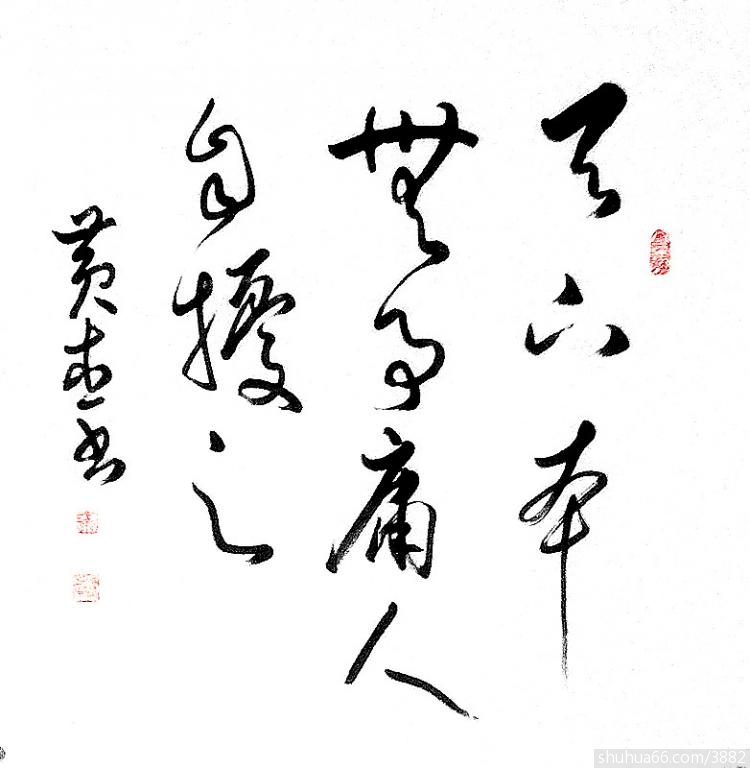 天下本
無事庸人
自擾之
黄书
shuhua66.com/3882